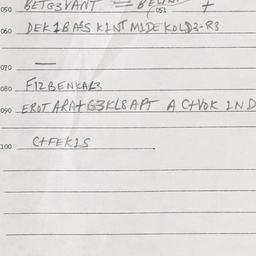 050 BETG3VANT = BE
051
060 DEK1BAES K1NT M1DE KOLD3-R3
070 —
080 F12BENKAL3
090 EROT ARAT G3KL8APT A C+VOK 1ND
100 C+FEK1S